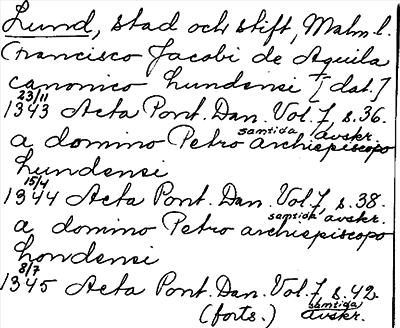 Lund, stad och stift, Malm. l.
Francisco Jacobi de Aquila
canonico Lundensi [dat.]
23/11
1343 Acta Pont. Dan. Vol. 7, s. 36.
samtida avskr.
a domino Petro archiepiscopo
Lundensi
15/4
1344 Acta Pont. Dan. Vol. 7 s. 38.
samtida avskr.
a domino Petro archiepiscopo
Londensi
8/7
1345 Acta Pont. Dan. Vol. 7 s. 42.
(forts.) samtida avskr.